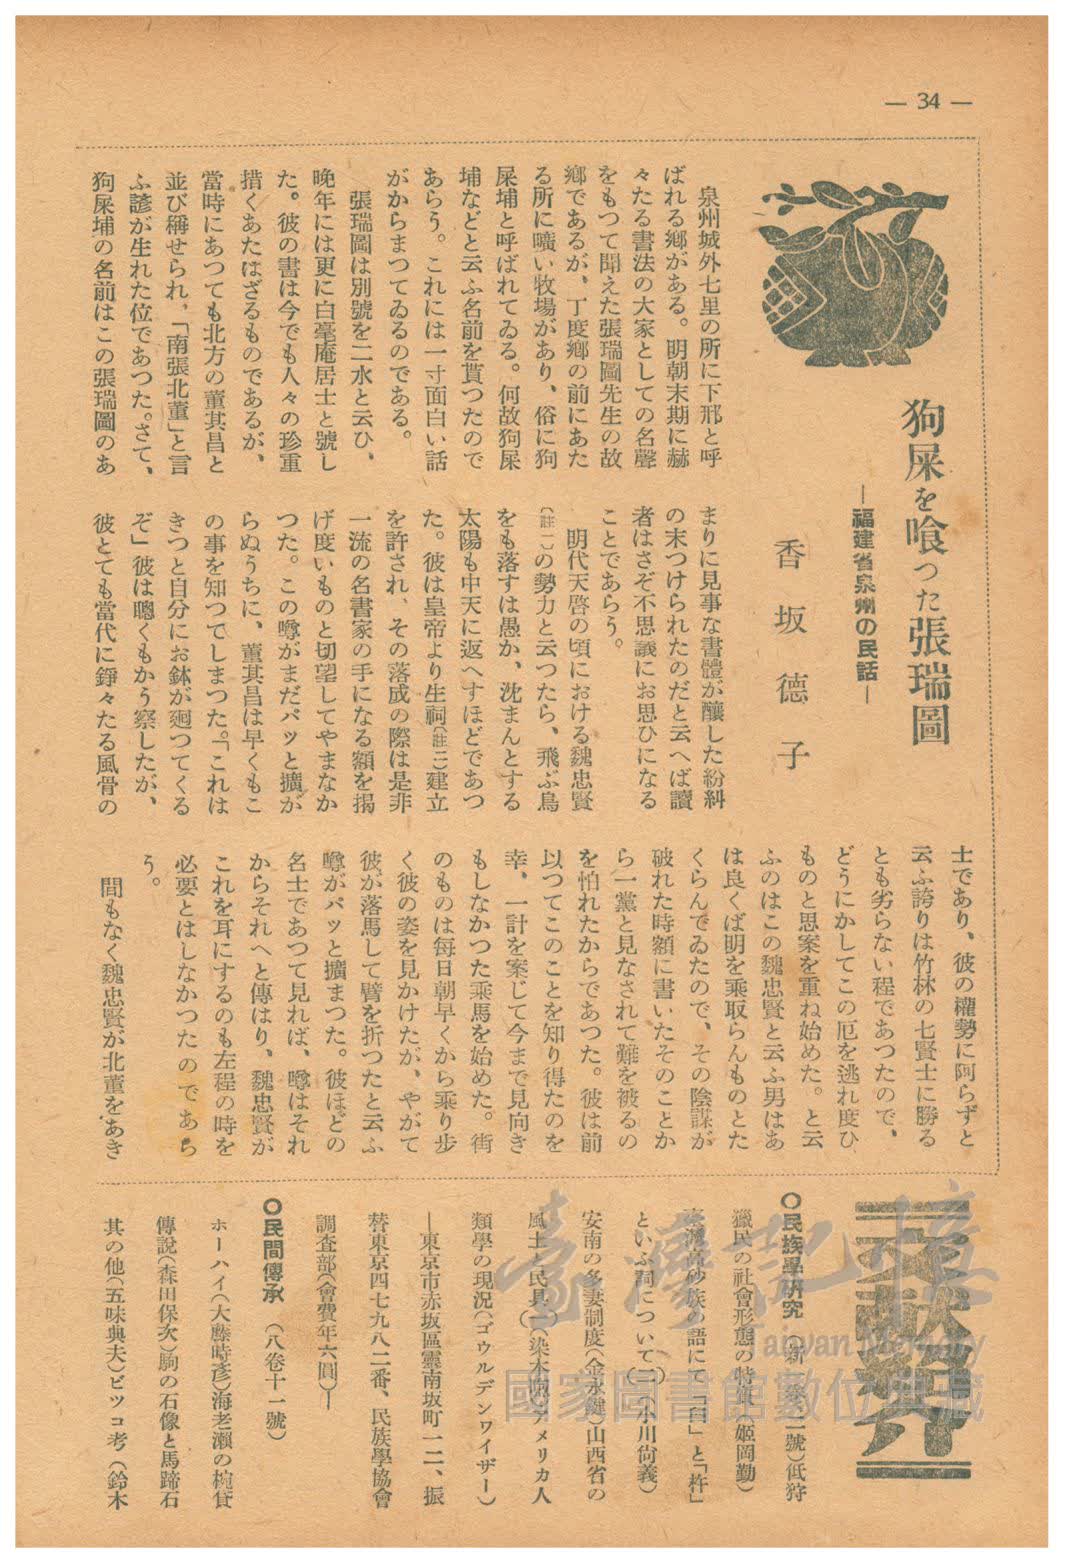 — 34 —
狗屎を喰つた張瑞圖
—福建省泉州の民話—
香坂德子
泉州城外七里の所に下邢と呼
ばれる鄕がある。明朝末期に赫
々たる書法の大家としての名聲
をもつて聞えた張瑞圖先生の故
鄕であるが、丁度鄕の前にあた
る所に曠い牧場があり、俗に狗
屎埔と呼ばれてゐる。何故狗屎
埔などと云ふ名前を貰つたので
あらう。これには一寸面白い話
がからまつてゐるのである。
張瑞圖は別號を二水と云ひ、
晩年には更に白毫庵居士と號し
た。彼の書は今でも人々の珍重
措くあたはざるものであるが、
當時にあつても北方の董其昌と
並び稱せられ、「南張北董」と言
ふ諺が生れた位であつた。さて、
狗屎埔の名前はこの張瑞圖のあ
まりに見事な書體が釀した紛糾
の末つけられたのだと云へば讀
者はさぞ不思議にお思ひになる
ことであらう。
明代天啓の頃における魏忠賢
〔註一〕の勢力と云つたら、飛ぶ鳥
をも落すは愚か、沈まんとする
太陽も中天に返へすほどであつ
た。彼は皇帝より生祠〔註二〕建立
を許され、その落成の際は是非
一流の名書家の手になる額を揭
げ度いものと切望してやまなか
つた。この噂がまだパッと擴が
らぬうちに、董其昌は早くもこ
の事を知つてしまつた。「これは
きつと自分にお鉢が廻つてくる
ぞ」彼は聰くもかう察したが、
彼とても當代に錚々たる風骨の
士であり、彼の權勢に阿らずと
云ふ誇りは竹林の七賢士に勝る
とも劣らない程であつたので、
どうにかしてこの厄を逃れ度ひ
ものと思案を重ね始めた。と云
ふのはこの魏忠賢と云ふ男はあ
は良くば明を乘取らんものとた
くらんでゐたので、その陰謀が
破れた時額に書いたそのことか
ら一黨と見なされて難を被るの
を怕れたからであつた。彼は前
以つてこのことを知り得たのを
幸、一計を案じて今まで見向き
もしなかつた乘馬を始めた。街
のものは每日朝早くから乘り步
く彼の姿を見かけたが、やがて
彼が落馬して臂を折つたと云ふ
噂がパッと擴まつた。彼ほどの
名士であつて見れば、噂はそれ
からそれへと傳はり、魏忠賢が
これを耳にするのも左程の時を
必要とはしなかつたのであら
う。
間もなく魏忠賢が北董をあき
文獻紹介
○民族學硏究（新一卷二號）低狩
獵民の社會形態の特質（姬岡勤）
臺灣高砂族の語にて「臼」と「杵」
といふ詞について(二)（小川尙義）
安南の多妻制度（金永鍵）山西省の
風土と民具(一)（染木煦）アメリカ人
類學の現況（ゴウルデンワイザー）
—東京市赤坂區靈南坂町一二、振
替東京四七九八二番、民族學協會
調査部（會費年六圓）—
○民間傳承（八卷十一號）
ホーハイ（大藤時彥）海老瀨の椀貸
傳說（森田保次）駒の石像と馬蹄石
其の他（五味典夫）ビツコ考（鈴木
臺灣記憶
Taiwan Memory
國家圖書館數位典藏